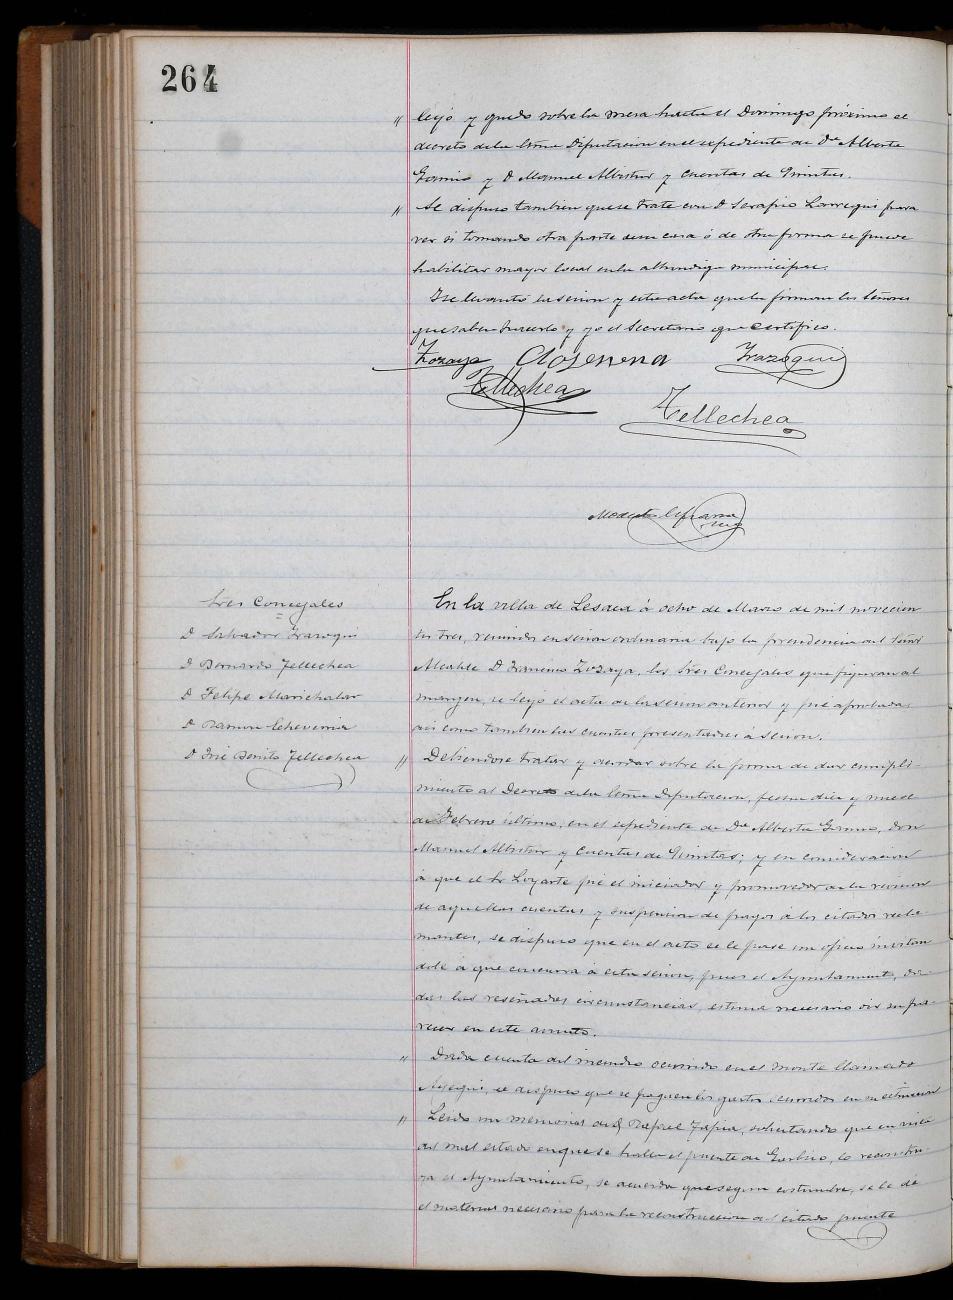 264
" leyó y quedó sobre la mesa hasta el Domingo próximo el
decreto de la Excma Diputacion en el expediente de Da Alberta
Gamio y D Manuel Albistur y Cuentas de Quintas.
" Se dispuso tambien que se trate con D Serapio Larregui para
ver si tomando otra parte de su casa ó de otra forma se puede
habilitar mayor local en la alhondiga municipal.
Se levantó la sesion y esta acta que la firman los Señores
que saben hacerlo y yo el Secretario que certifico.
Zozaya Irazoqui
Tellechea
Tellechea
Modesto
Sres Concejales
D Salvador Irazoqui
D Bernardo Tellechea
D Felipe Marichalar
D Ramon Echeverria
D José Benito Tellechea
En la villa de Lesaca á ocho de Marzo de mil novecien
tos tres, reunidos en sesion ordinaria bajo la presidencia del Señor
Alcalde D Francisco Zozaya, los Sres Concejales que figuran al
margen, se leyó el acta de la sesion anterior y fué aprobada,
asi como tambien las cuentas presentadas á sesion.
" Debiendose tratar y acordar sobre la forma de dar cumpli-
miento al Decreto de la Excma Diputacion, fecha diez y nueve
de Febrero ultimo, en el expediente de Da Alberta Gamio, Don
Manuel Albistur y Cuentas de Quintas; y en consideracion
á que el Sr Loyarte fué el iniciador y promovedor de la revision
de aquellas cuentas y suspension de pagos á los citados recla-
mantes, se dispuso que en el acto se le pase un oficio invitan
dole á que concurra á esta sesion, pues el Ayuntamiento, da-
das las reseñadas circunstancias, estima necesario oir su pa-
recer en este asunto.
" Dada cuenta del incendio ocurrido en el monte llamado
se dispuso que se paguen los gastos ocurridos en su estincion
" Leido un memorial de D Rafael Tapia, solicitando que en vista
del mal estado en que se halla el puente de Garbiso, lo reconstru-
ya el Ayuntamiento, se acuerda que segun costumbre, se le dé
el material necesario para la reconstruccion del citado puente